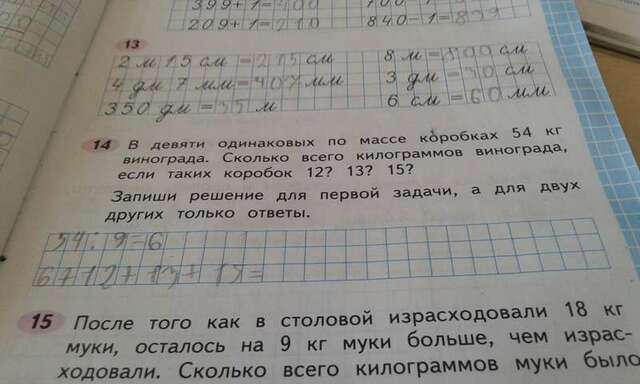 399+1=400
209+1=210 840-1=839
13
2 м 15 см = 215 см 8 м = 800 см
4 дм 7 мм = 407 мм 3 дм = 30 см
350 дм = 35 м 6 см = 60 мм
14 В девяти одинаковых по массе коробках 54 кг
винограда. Сколько всего килограммов винограда,
если таких коробок 12? 13? 15?
Запиши решение для первой задачи, а для двух
других только ответы.
54:9=6
6+12+13+15=
15 После того как в столовой израсходовали 18 кг
муки, осталось на 9 кг муки больше, чем израс-
ходовали. Сколько всего килограммов муки было